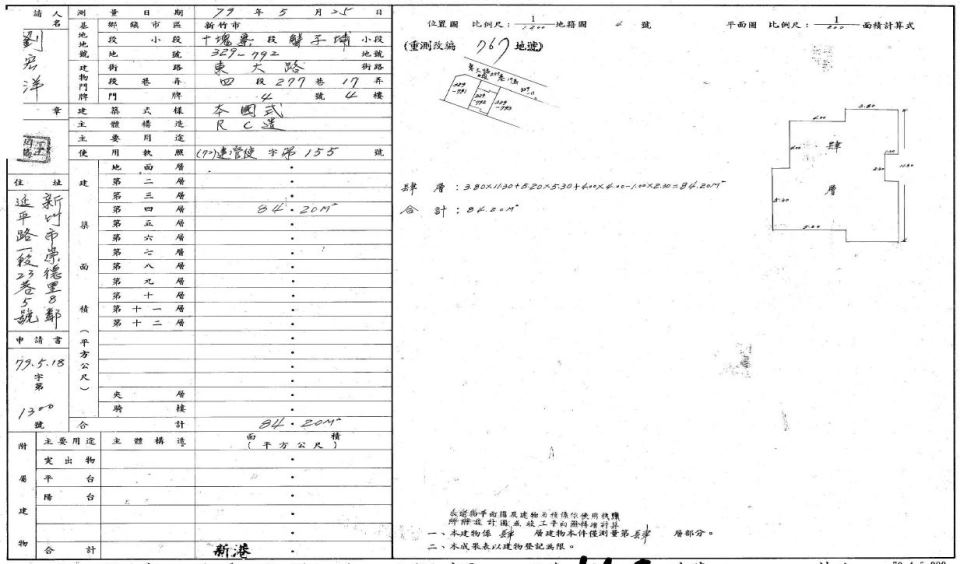 請人名
劉
洋
章
住址
新竹市崇德里8鄰
延平路一段23巷5號
申請書
79.5.18
字第
1300
號
測量日期 79年5月25日
基地地號
鄉鎮市區 新竹市
段小段 十塊寮段蟹子埔小段
地號 329-792 地號
建物門牌
街路 東大路 街路
段巷弄 四段277巷17弄
門牌 4號4樓
建築式樣 本國式
主體構造 RC造
主要用途
使用執照 字第155號
建築面積(平方公尺)
地面層
第二層
第三層
第四層 84.20M²
第五層
第六層
第七層
第八層
第九層
第十層
第十一層
第十二層
夾層
騎樓
合計 84.20M²
附屬建物
主要用途 主體構造 面積(平方公尺)
突出物
平台
陽台
合計
新港
位置圖 比例尺: 地籍圖 號
平面圖 比例尺: 面積計算式
(重測改編 767地號)
329-791
329-792
329-793
肆層:3.80×11.30+5.20×5.30+4.00×4.00-1.00×2.30=84.20M²
合計:84.20M²
3.80
4.00
肆
層
5.30
5.20
一、本建物係肆層建物本件僅測量第肆層部分。
二、本成果表以建物登記為限。